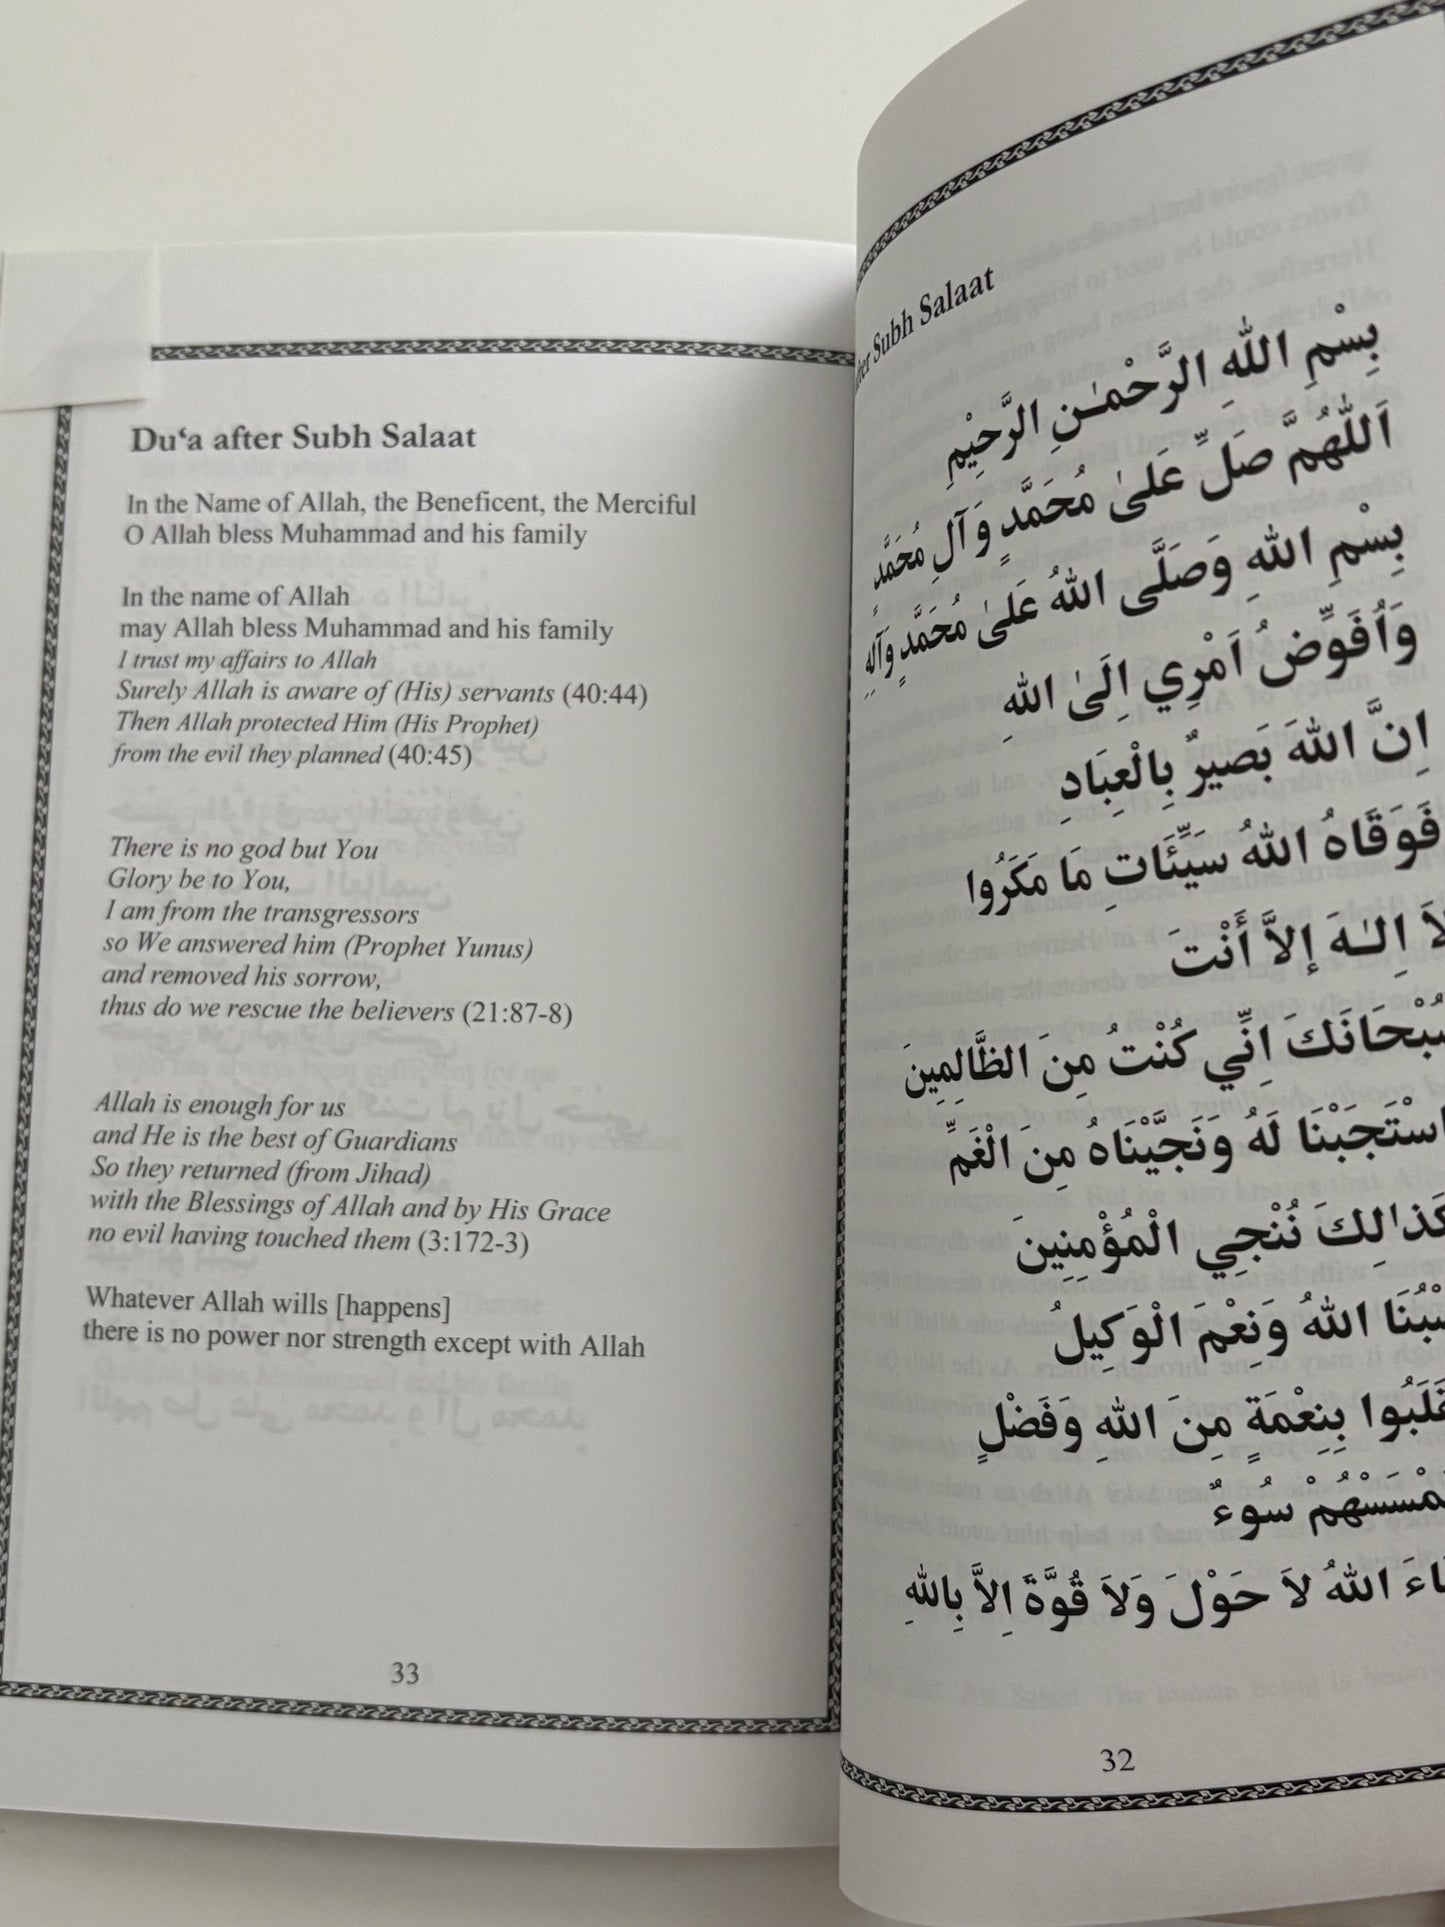 Du‘a after Subh Salaat
In the Name of Allah, the Beneficent, the Merciful
O Allah bless Muhammad and his family
In the name of Allah
may Allah bless Muhammad and his family
I trust my affairs to Allah
Surely Allah is aware of (His) servants (40:44)
Then Allah protected Him (His Prophet)
from the evil they planned (40:45)
There is no god but You
Glory be to You,
I am from the transgressors
so We answered him (Prophet Yunus)
and removed his sorrow,
thus do we rescue the believers (21:87-8)
Allah is enough for us
and He is the best of Guardians
So they returned (from Jihad)
with the Blessings of Allah and by His Grace
no evil having touched them (3:172-3)
Whatever Allah wills [happens]
there is no power nor strength except with Allah
33
after Subh Salaat
بِسْمِ اللهِ الرَّحْمـٰنِ الرَّحِيْمِ
اَللّٰهُمَّ صَلِّ عَلىٰ مُحَمَّدٍ وَ آلِ مُحَمَّدٍ
بِسْمِ اللهِ وَصَلَّى اللهُ عَلىٰ مُحَمَّدٍ وَآلِهِ
وَاُفَوِّضُ اَمْرِي اِلَىٰ اللهِ
اِنَّ اللهَ بَصيرٌ بِالْعِبَادِ
فَوَقَاهُ اللهُ سَيِّئَاتِ مَا مَكَرُوا
لاَ اِلـٰهَ إلاَّ أَنْتَ
اِنِّي كُنْتُ مِنَ الظَّالِمِينَ
لَهُ وَنَجَّيْنَاهُ مِنَ الْغَمِّ
نُنْجِي الْمُؤْمِنِينَ
اللهُ وَنِعْمَ الْوَكِيلُ
بِنِعْمَةٍ مِنَ اللهِ وَفَضْلٍ
سُوءٌ
اللهُ لاَ حَوْلَ وَلاَ قُوَّةَ اِلاَّ بِاللهِ
32